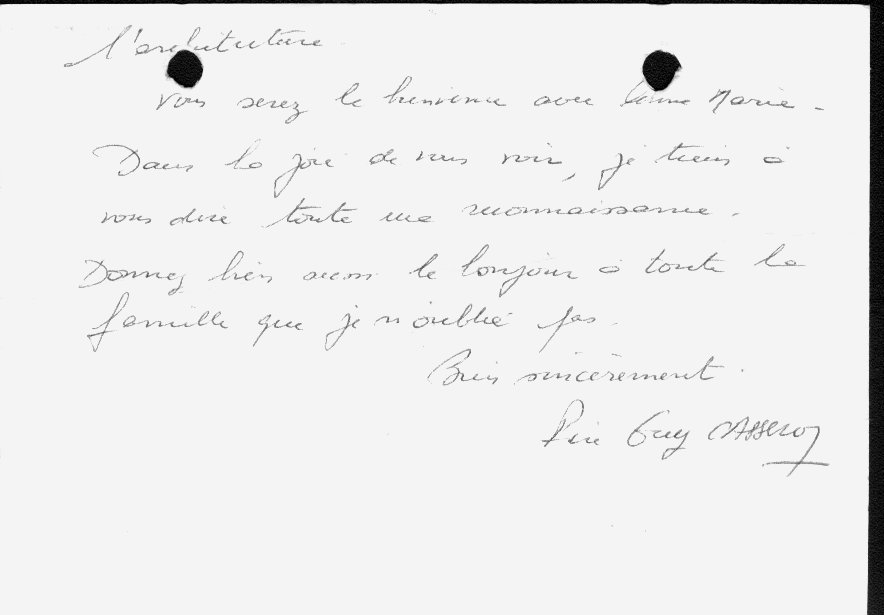 l'architecture
Vous serez le bienvenu avec Anne Marie.
Dans la joie de vous voir, je tiens à
vous dire toute ma reconnaissance.
Donnez bien aussi le bonjour à toute la
famille que je n'oublie pas.
Bien sincèrement.
Père Guy